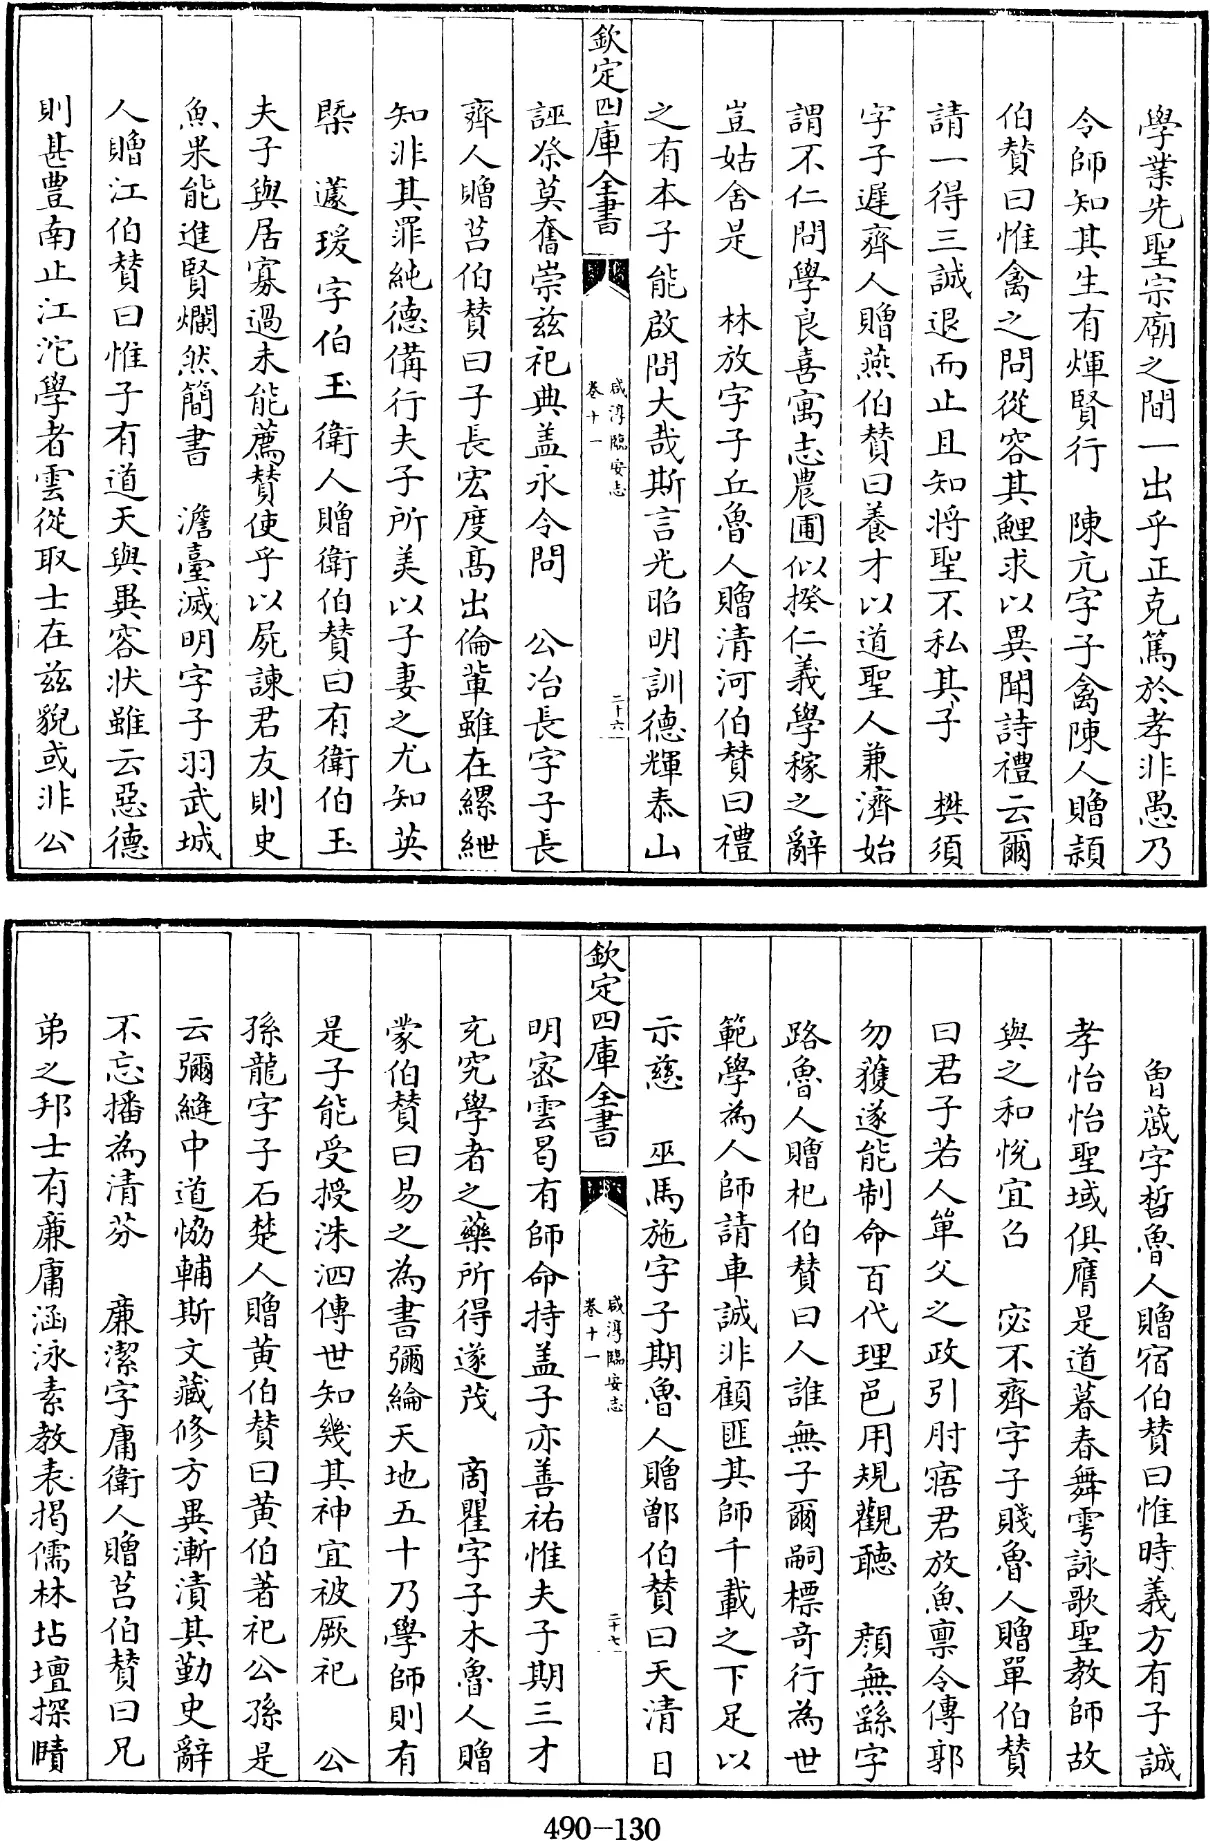 學業先聖宗廟之間一出乎正克篤於孝非愚乃
令師知其生有煇賢行　陳亢字子禽陳人贈潁
伯賛曰惟禽之問從容其鯉求以異聞詩禮云爾
請一得三誠退而止且知将聖不私其子　樊須
字子遲齊人贈燕伯賛曰養才以道聖人兼濟始
謂不仁問學良喜寓志農圃似揆仁義學稼之辭
豈姑舍是　林放字子丘魯人贈清河伯賛曰禮
之有本子能啟問大哉斯言光昭明訓德輝泰山
欽定四庫全書
咸淳臨安志
卷十一
二十六
誣祭莫奮崇兹祀典盖永令問　公冶長字子長
齊人贈莒伯賛曰子長宏度髙出倫輩雖在縲紲
知非其罪純德備行夫子所美以子妻之尤知英
槩　蘧瑗字伯玉衛人贈衛伯賛曰有衛伯玉
夫子與居寡過未能薦賛使乎以屍諫君友則史
魚果能進賢爛然簡書　澹臺滅明字子羽武城
人贈江伯賛曰惟子有道天與異容状雖云惡德
則甚豐南止江沱學者雲從取士在兹貌或非公
魯蒧字晳魯人贈宿伯賛曰惟時義方有子誠
孝怡怡聖域俱膺是道暮春舞雩詠歌聖教師故
與之和悅宜召　宓不齊字子賤魯人贈單伯賛
曰君子若人單父之政引肘寤君放魚禀令傳郭
勿獲遂能制命百代理邑用規觀聽　顔無繇字
路魯人贈杞伯賛曰人誰無子爾嗣標奇行為世
範學為人師請車誠非顧匪其師千載之下足以
示慈　巫馬施字子期魯人贈鄫伯賛曰天清日
欽定四庫全書
咸淳臨安志
卷十一
二十七
明宻雲曷有師命持盖子亦善祐惟夫子期三才
充究學者之藥所得遂茂　商瞿字子木魯人贈
蒙伯賛曰易之為書彌綸天地五十乃學師則有
是子能受授洙泗傳世知幾其神宜被厥祀　公
孫龍字子石楚人贈黄伯賛曰黄伯著祀公孫是
云彌縫中道恊輔斯文藏修方異漸漬其勤史辭
不忘播為清芬　廉潔字庸衛人贈莒伯賛曰兄
弟之邦士有廉庸涵泳素教表揭儒林坫壇探賾
490-130